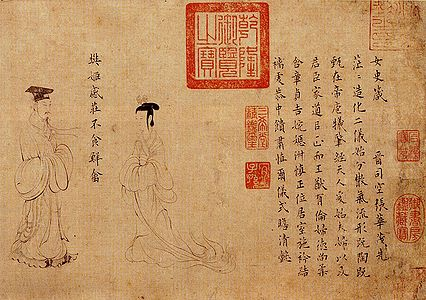 女史箴
晉司空張華茂先
茫〻造化二儀始分散氣流形既陶既
甄在帝庖犧肇經天人爰始夫婦以及
君臣家道以正而王猷有倫婦德尚柔
含章貞吉婉嫕淑慎正位居室施衿結
褵虔恭中饋肅慎爾儀式瞻清懿
乾隆御覽之寶
三希堂精鑑璽
宜子孫
樊姬感莊不食鮮禽